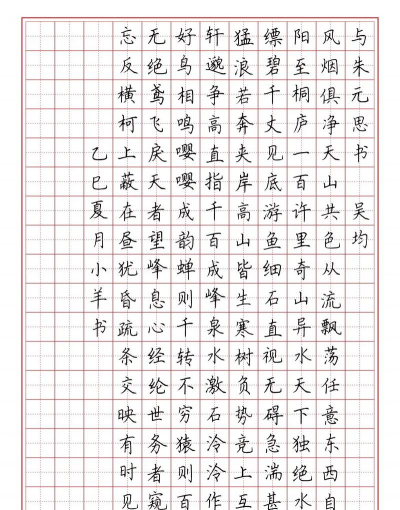 与朱元思书 吴均
风烟俱净天山共色从流飘荡任意东西自
阳至桐庐一百许里奇山异水天下独绝水
缥碧千丈见底游鱼细石直视无碍急湍甚
猛浪若奔夹岸高山皆生寒树负势竞上互
轩邈争高直指千百成峰泉水激石泠泠作
好鸟相鸣嘤嘤成韵蝉则千转不穷猿则百
无绝鸢飞戾天者望峰息心经纶世务者窥
忘反横柯上蔽在昼犹昏疏条交映有时见
乙巳夏月小羊书